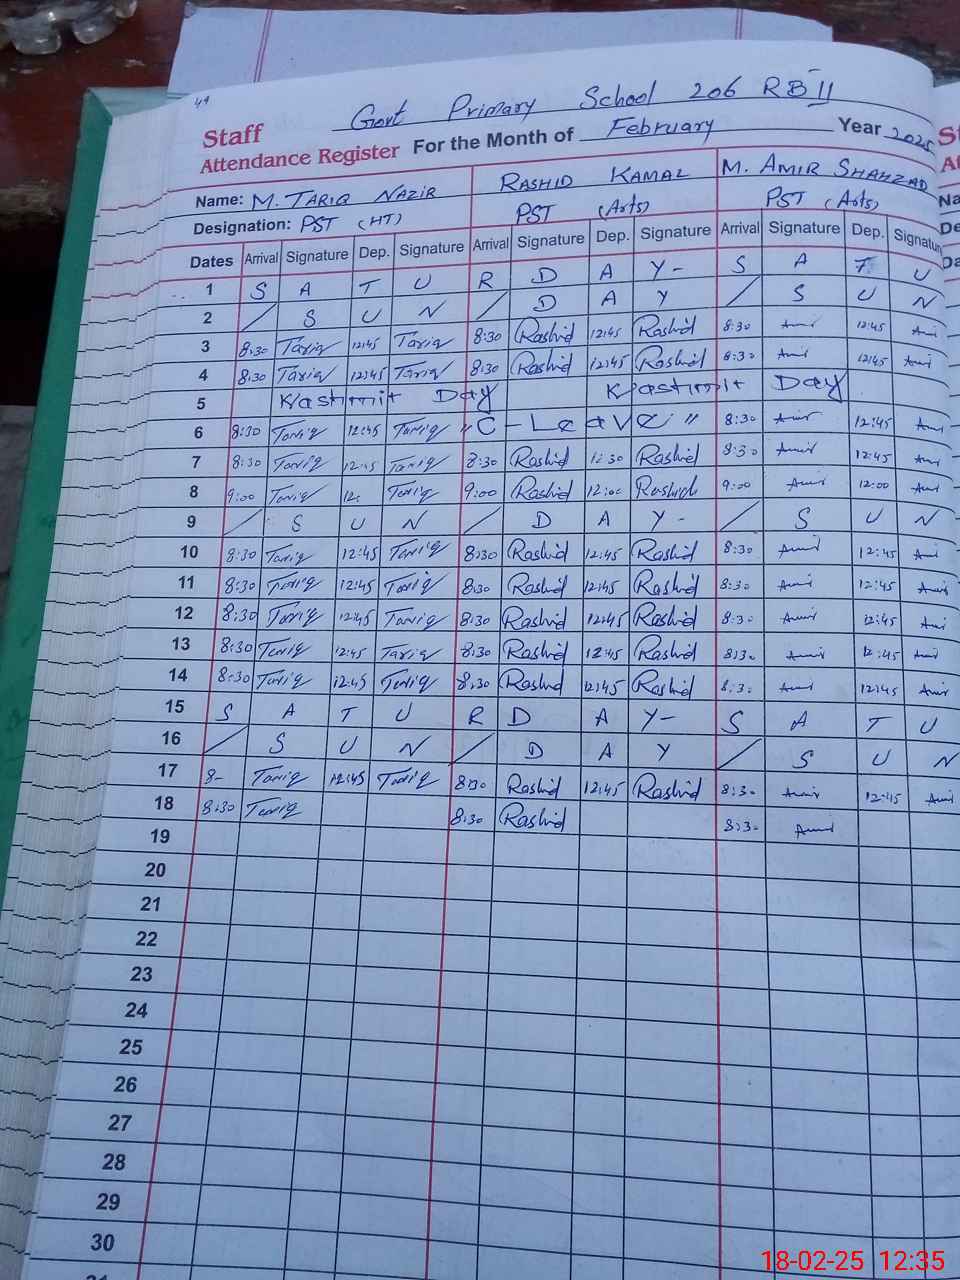 49
Govt Primary School 206 RB II
Staff
Attendance Register For the Month of February Year 2025
Name: M. TARIQ NAZIR RASHID KAMAL M. AMIR SHAHZAD
Designation: PST (HT) PST (Arts) PST (Arts)
Dates Arrival Signature Dep. Signature Arrival Signature Dep. Signature Arrival Signature Dep. Signature
1 S A T U R D A Y - S A T U
2 / S U N / D A Y / S U N
3 8:30 Tariq 12:45 Tariq 8:30 Rashid 12:45 Rashid 8:30 Amir 12:45 Amir
4 8:30 Tariq 12:45 Tariq 8:30 Rashid 12:45 Rashid 8:30 Amir 12:45 Amir
5 Kashmir Day Kashmir Day
6 8:30 Tariq 12:45 Tariq " C - Leave " 8:30 Amir 12:45 Amir
7 8:30 Tariq 12:45 Tariq 8:30 Rashid 12:30 Rashid 8:30 Amir 12:45 Amir
8 9:00 Tariq 12: Tariq 9:00 Rashid 12:00 Rashid 9:00 Amir 12:00 Amir
9 / S U N / D A Y - / S U N
10 8:30 Tariq 12:45 Tariq 8:30 Rashid 12:45 Rashid 8:30 Amir 12:45 Amir
11 8:30 Tariq 12:45 Tariq 8:30 Rashid 12:45 Rashid 8:30 Amir 12:45 Amir
12 8:30 Tariq 12:45 Tariq 8:30 Rashid 12:45 Rashid 8:30 Amir 12:45 Amir
13 8:30 Tariq 12:45 Tariq 8:30 Rashid 12:45 Rashid 8:30 Amir 12:45 Amir
14 8:30 Tariq 12:45 Tariq 8:30 Rashid 12:45 Rashid 8:30 Amir 12:45 Amir
15 S A T U R D A Y - S A T U
16 / S U N / D A Y / S U N
17 8- Tariq 12:45 Tariq 8:30 Rashid 12:45 Rashid 8:30 Amir 12:45 Amir
18 8:30 Tariq 8:30 Rashid 8:30 Amir
19
20
21
22
23
24
25
26
27
28
29
30
31
18-02-25 12:35